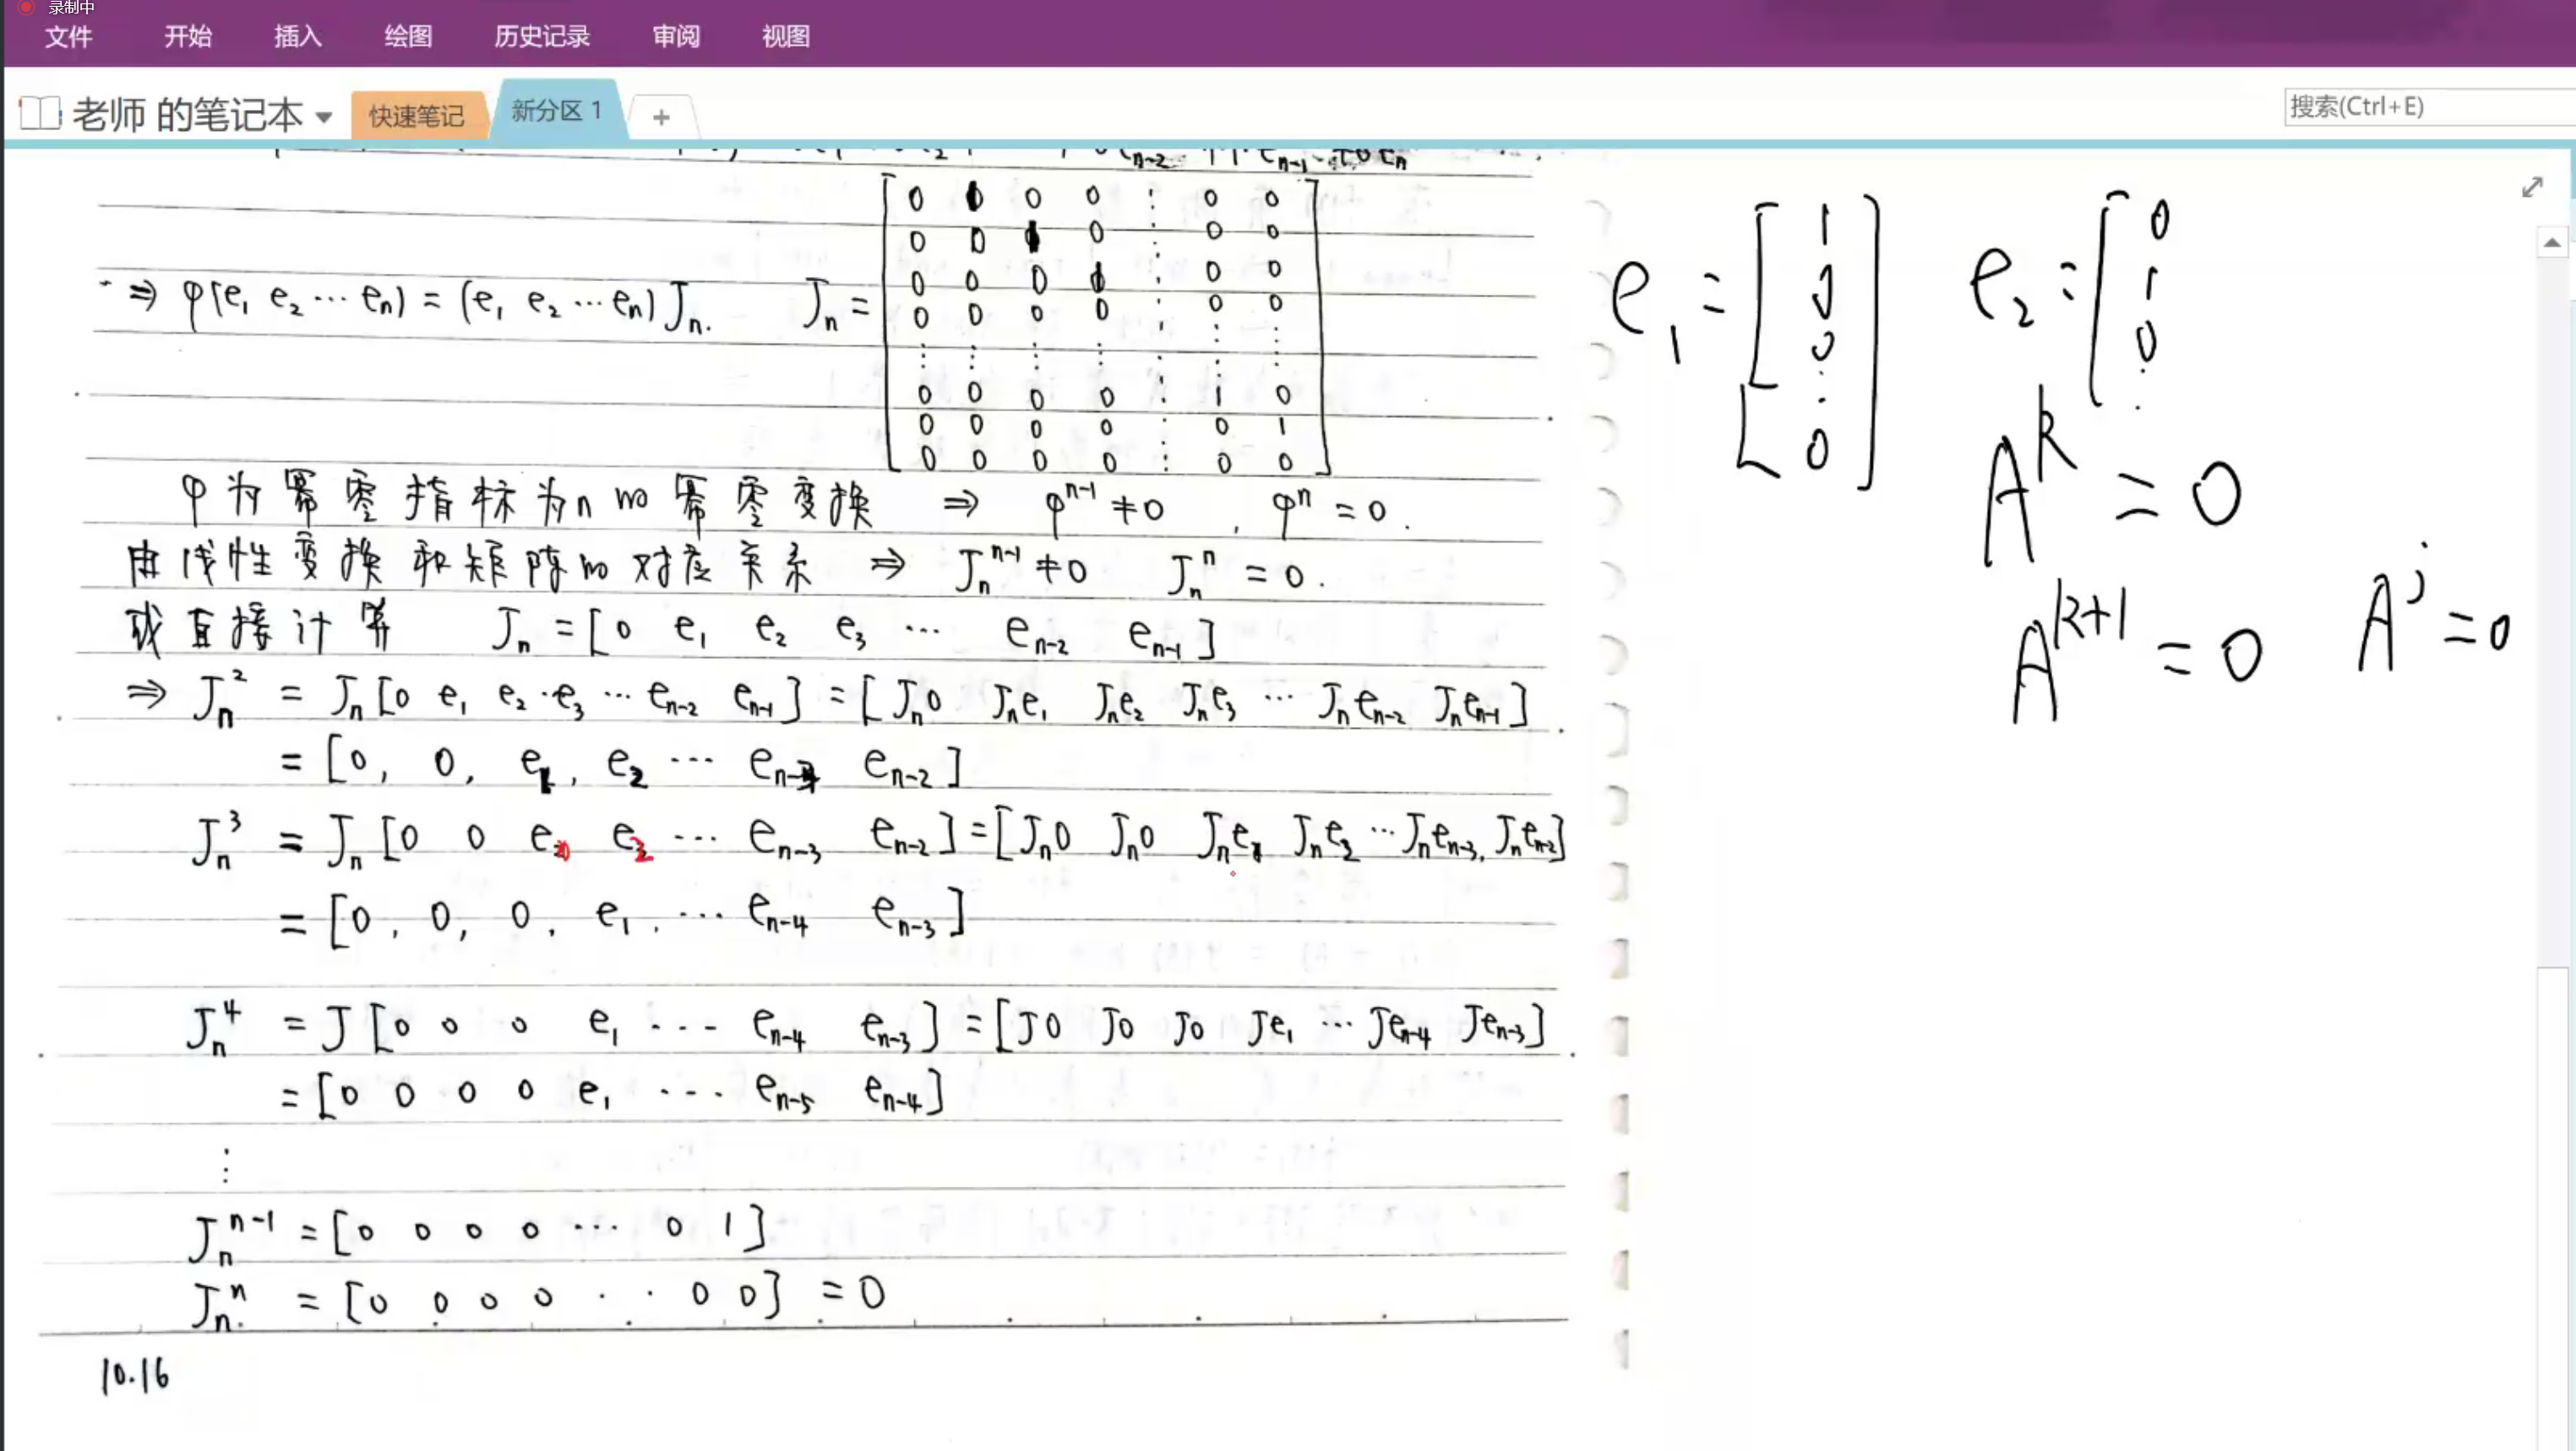 录制中
文件 开始 插入 绘图 历史记录 审阅 视图
老师 的笔记本 快速笔记 新分区 1 +
搜索(Ctrl+E)
⇒ φ(e₁ e₂ ⋯ eₙ) = (e₁ e₂ ⋯ eₙ) Jₙ. Jₙ =
0 1 0 0 ⋮ 0 0
0 0 1 0 ⋮ 0 0
0 0 0 1 ⋮ 0 0
0 0 0 0 ⋮ 0 0
⋮ ⋮ ⋮ ⋮ ⋮ ⋮
0 0 0 0 ⋮ 1 0
0 0 0 0 ⋮ 0 1
0 0 0 0 ⋮ 0 0
φ为幂零指标为n的幂零变换 ⇒ φⁿ⁻¹ ≠ 0, φⁿ = 0.
由线性变换和矩阵的对应关系 ⇒ Jₙⁿ⁻¹ ≠ 0 Jₙⁿ = 0.
或直接计算 Jₙ = [0 e₁ e₂ e₃ ⋯ eₙ₋₂ eₙ₋₁]
⇒ Jₙ² = Jₙ [0 e₁ e₂ e₃ ⋯ eₙ₋₂ eₙ₋₁] = [Jₙ0 Jₙe₁ Jₙe₂ Jₙe₃ ⋯ Jₙeₙ₋₂ Jₙeₙ₋₁]
= [0, 0, e₁, e₂ ⋯ eₙ₋₃ eₙ₋₂]
Jₙ³ = Jₙ [0 0 e₁ e₂ ⋯ eₙ₋₃ eₙ₋₂] = [Jₙ0 Jₙ0 Jₙe₁ Jₙe₂ ⋯ Jₙeₙ₋₃, Jₙeₙ₋₂]
= [0, 0, 0, e₁, ⋯ eₙ₋₄ eₙ₋₃]
Jₙ⁴ = J [0 0 0 e₁ ⋯ eₙ₋₄ eₙ₋₃] = [J0 J0 J0 Je₁ ⋯ Jeₙ₋₄ Jeₙ₋₃]
= [0 0 0 0 e₁ ⋯ eₙ₋₅ eₙ₋₄]
⋮
Jₙⁿ⁻¹ = [0 0 0 0 ⋯ 0 1]
Jₙⁿ = [0 0 0 0 ⋯ 0 0] = 0
10.16
e₁ = [1 0 0 ⋮ 0]
e₂ = [0 1 0 ⋮
Aᵏ = 0
Aᵏ⁺¹ = 0 Aʲ = 0